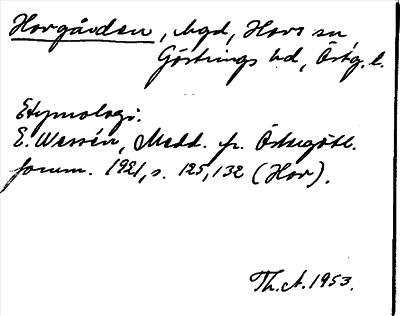 Horgården, bygd, Hovs sn
Göstrings hd, Östg. l.
Etymologi:
E. Wessén, Medd. fr. Östergötl.
fornm. 1921, s. 125, 132 (Hor).
Th. A. 1953.